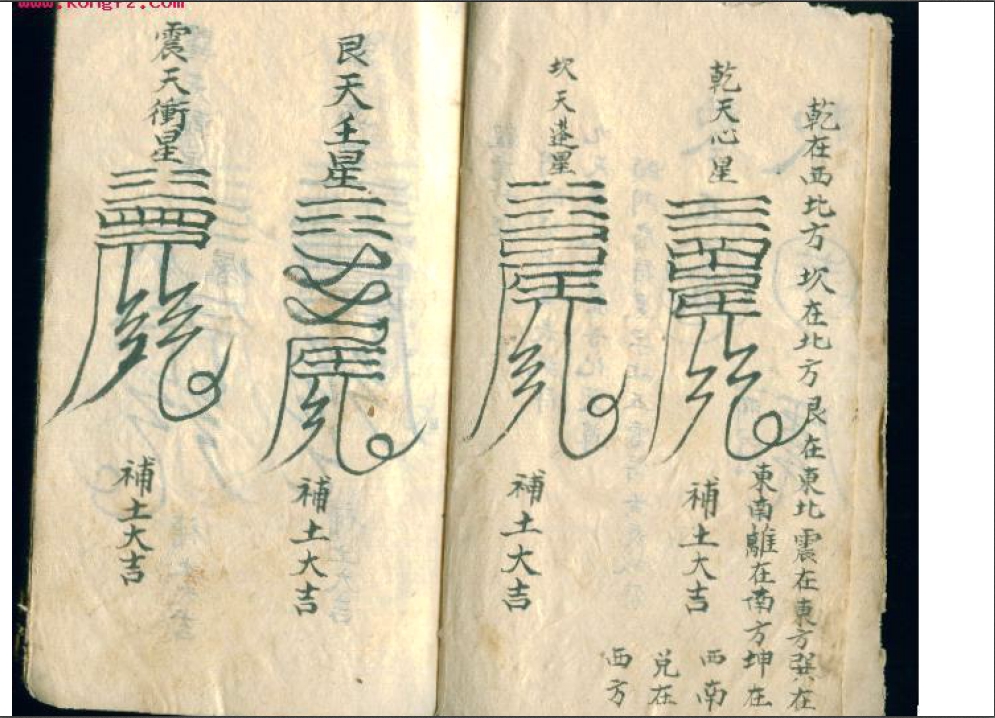 www.kongfz.com
乾在西北方坎在北方艮在東北震在東方巽在
東南離在南方坤在
西南
兌在
西方
乾天心星
補土大吉
坎天蓬星
補土大吉
艮天壬星
補土大吉
震天衝星
補土大吉